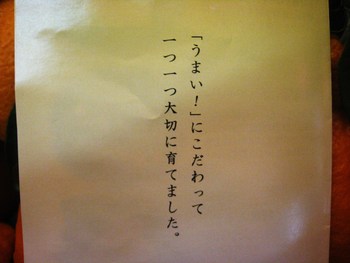 「うまい！」にこだわって
一つ一つ大切に育てました。